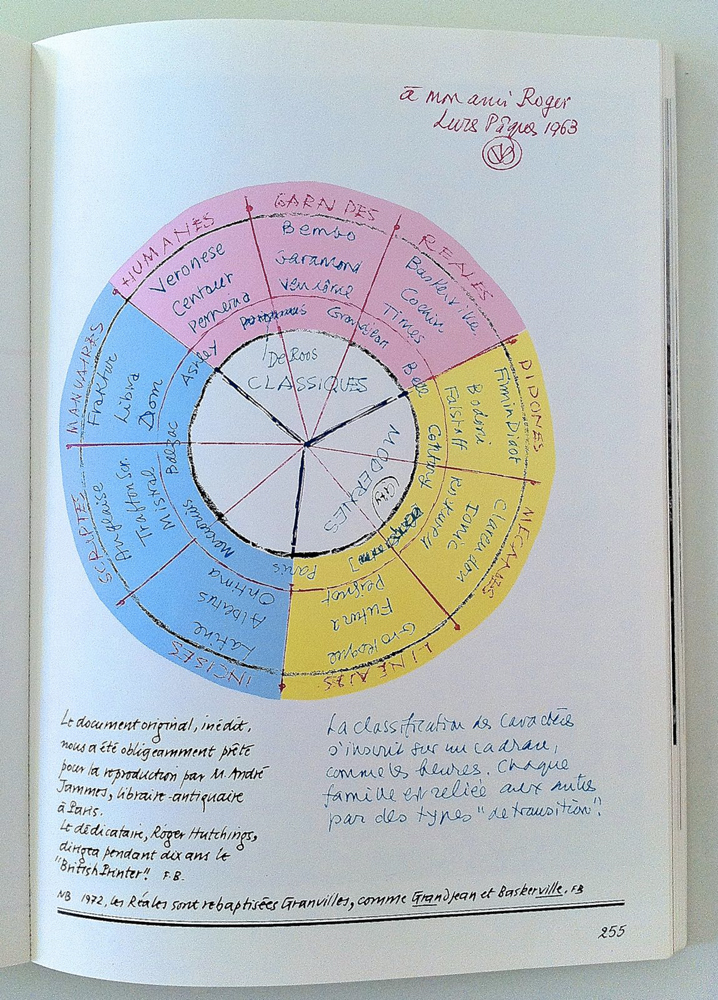 à mon ami Roger
Lurs Pâques 1963
HUMANES
Veronese
Centaur
Perpetua
GARNDES
Bembo
Garamond
Vendôme
Grandjean
REALES
Baskerville
Cochin
Times
Bell
DIDONES
Firmin Didot
Bodoni
Falstaff
Century
MECANES
Clarendon
Ionic
Rockwell
LINEALES
Grotesque
Futura
Peignot
Paris
INCISES
Latine
Albertus
Optima
Mercurius
SCRIPTES
Anglaise
Trafton Scr.
Mistral
Balzac
MANUAIRES
Fraktur
Libra
Dom
Ashley
De Roos
CLASSIQUES
MODERNES
Le document original, inédit,
nous a été obligeamment prêté
pour la reproduction par M. André
Jammes, libraire-antiquaire
à Paris.
Le dédicataire, Roger Hutchings,
dirigea pendant dix ans le
"British Printer". F.B.
La classification des caractères
s'inscrit sur un cadran,
comme les heures. Chaque
famille est reliée aux autres
par des types "de transition".
NB 1972, les Réales sont rebaptisées Granvilles, comme Grandjean et Baskerville. FB
255